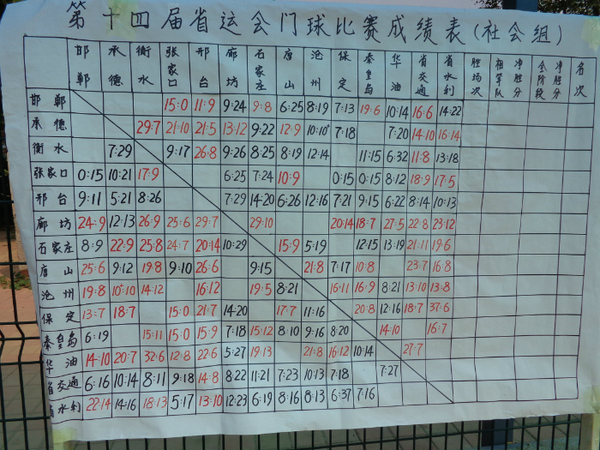 第十四届省运会门球比赛成绩表(社会组)
邯郸 承德 衡水 张家口 邢台 廊坊 石家庄 唐山 沧州 保定 秦皇岛 华油 省交通 省水利 胜场次 相等队 净胜分 全阶段 净胜分 名次
邯郸 15:0 11:9 9:24 9:8 6:25 8:19 7:13 19:6 10:14 16:6 14:22
承德 29:7 21:10 21:5 13:12 9:22 12:9 10:10 7:18 7:20 14:10 16:14
衡水 7:29 9:17 26:8 9:26 8:25 8:19 12:14 11:15 6:32 11:8 13:18
张家口 0:15 10:21 17:9 6:25 7:24 10:9 0:15 0:15 8:12 18:9 17:5
邢台 9:11 5:21 8:26 7:29 14:20 6:26 12:16 7:21 9:15 6:22 8:14 10:13
廊坊 24:9 12:13 26:9 25:6 29:7 29:10 20:14 18:7 27:5 22:8 23:12
石家庄 8:9 22:9 25:8 24:7 20:14 10:29 15:9 5:19 12:15 13:19 21:11 19:6
唐山 25:6 9:12 19:8 9:10 26:6 9:15 21:8 7:17 10:8 23:7 16:8
沧州 19:8 10:10 14:12 16:12 19:5 8:21 16:11 16:9 21:8 13:10 13:8
保定 13:7 18:7 15:0 21:7 14:20 17:7 11:16 20:8 12:16 18:7 37:6
秦皇岛 6:19 15:11 15:0 15:9 7:18 15:12 8:10 9:16 8:20 14:10 16:7
华油 14:10 20:7 32:6 12:8 22:6 5:27 19:13 21:8 16:12 10:14 27:7
省交通 6:16 10:14 8:11 9:18 14:8 8:22 11:21 7:23 10:13 7:18 7:27
省水利 22:14 14:16 18:13 5:17 13:10 12:23 6:19 8:16 8:13 6:37 7:16